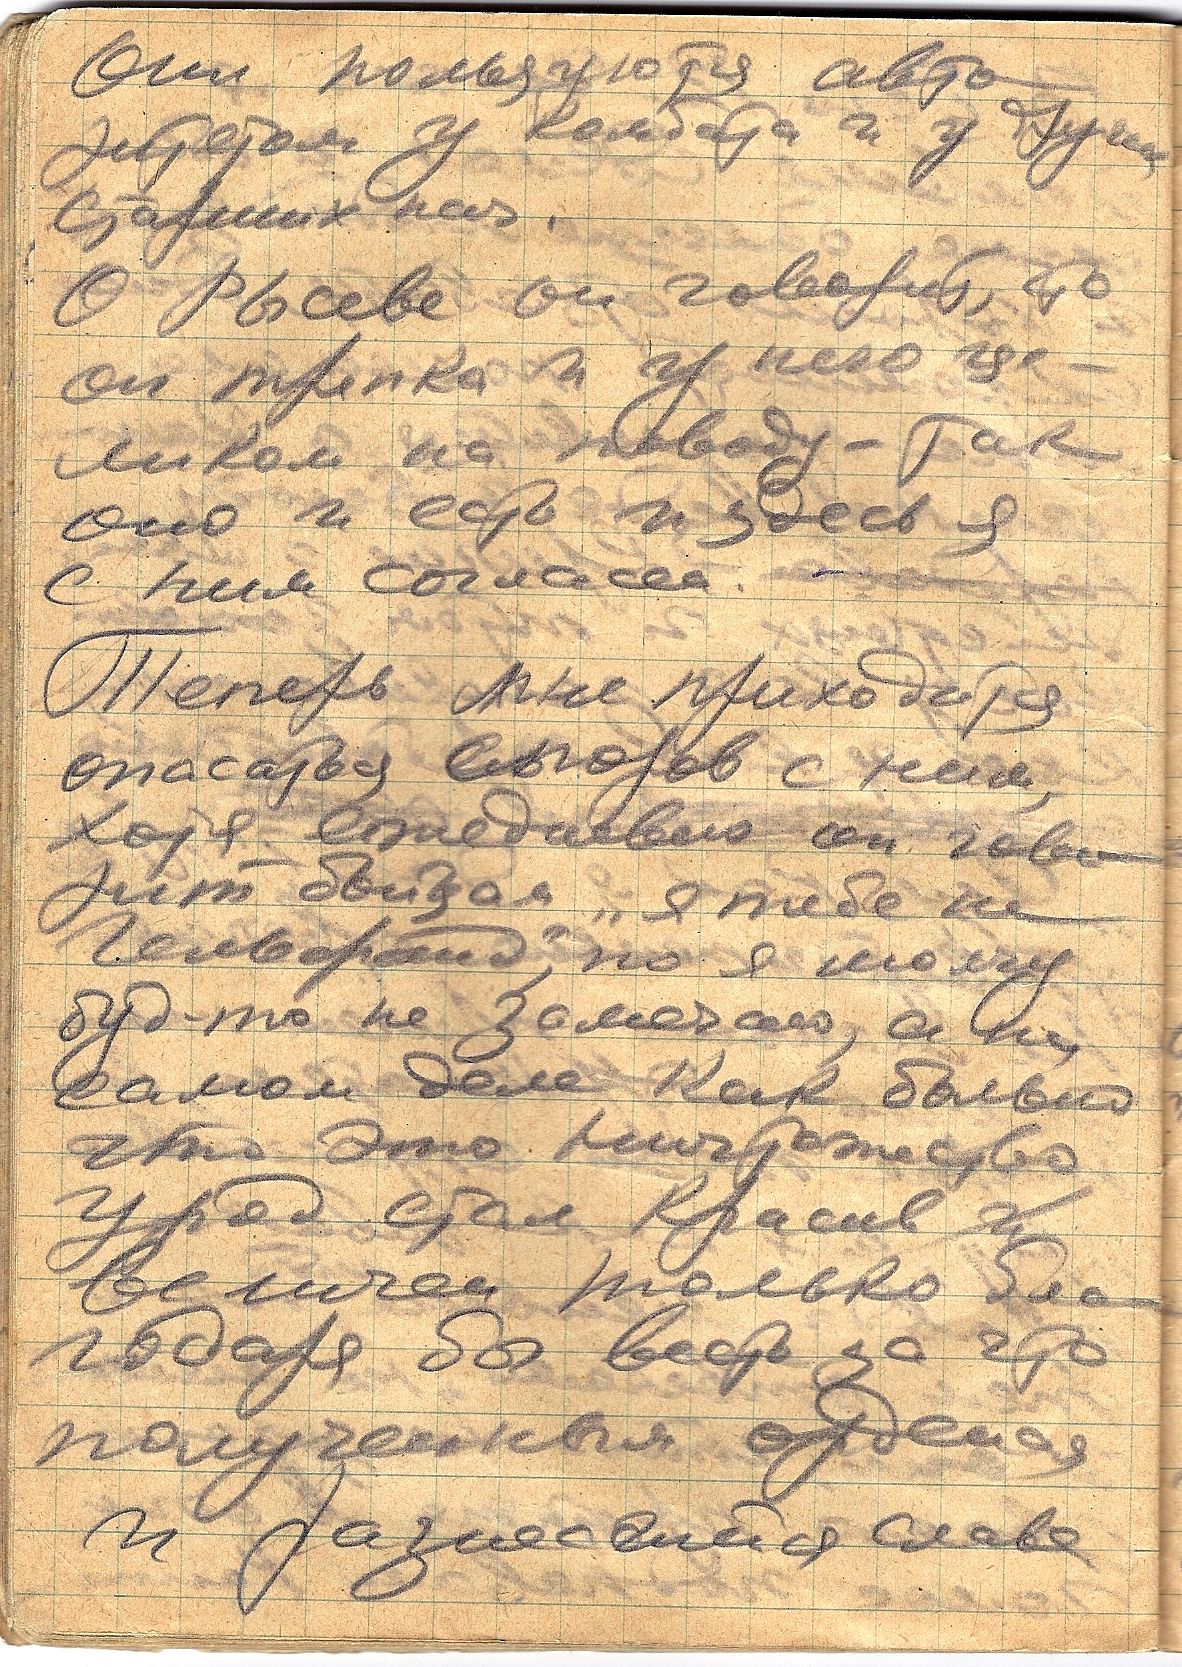 Они пользуются авто-
ритетом у комбата и у других
старших нач.
О Рысеве он говорит, что
он тряпка и у него це-
ликом на поводу – так
оно и есть и здесь я
с ним согласен.
Теперь мне приходится
опасаться споров с ним,
хотя ежедневно он гово-
рит бызам „я тебе не
Гельфанд", но я молчу
буд-то не замечаю, а на
самом деле как больно
что это ничтожество
урод стал красив и
величен только бла-
годаря бог весть за что
полученным орденам
и разнесшейся славе